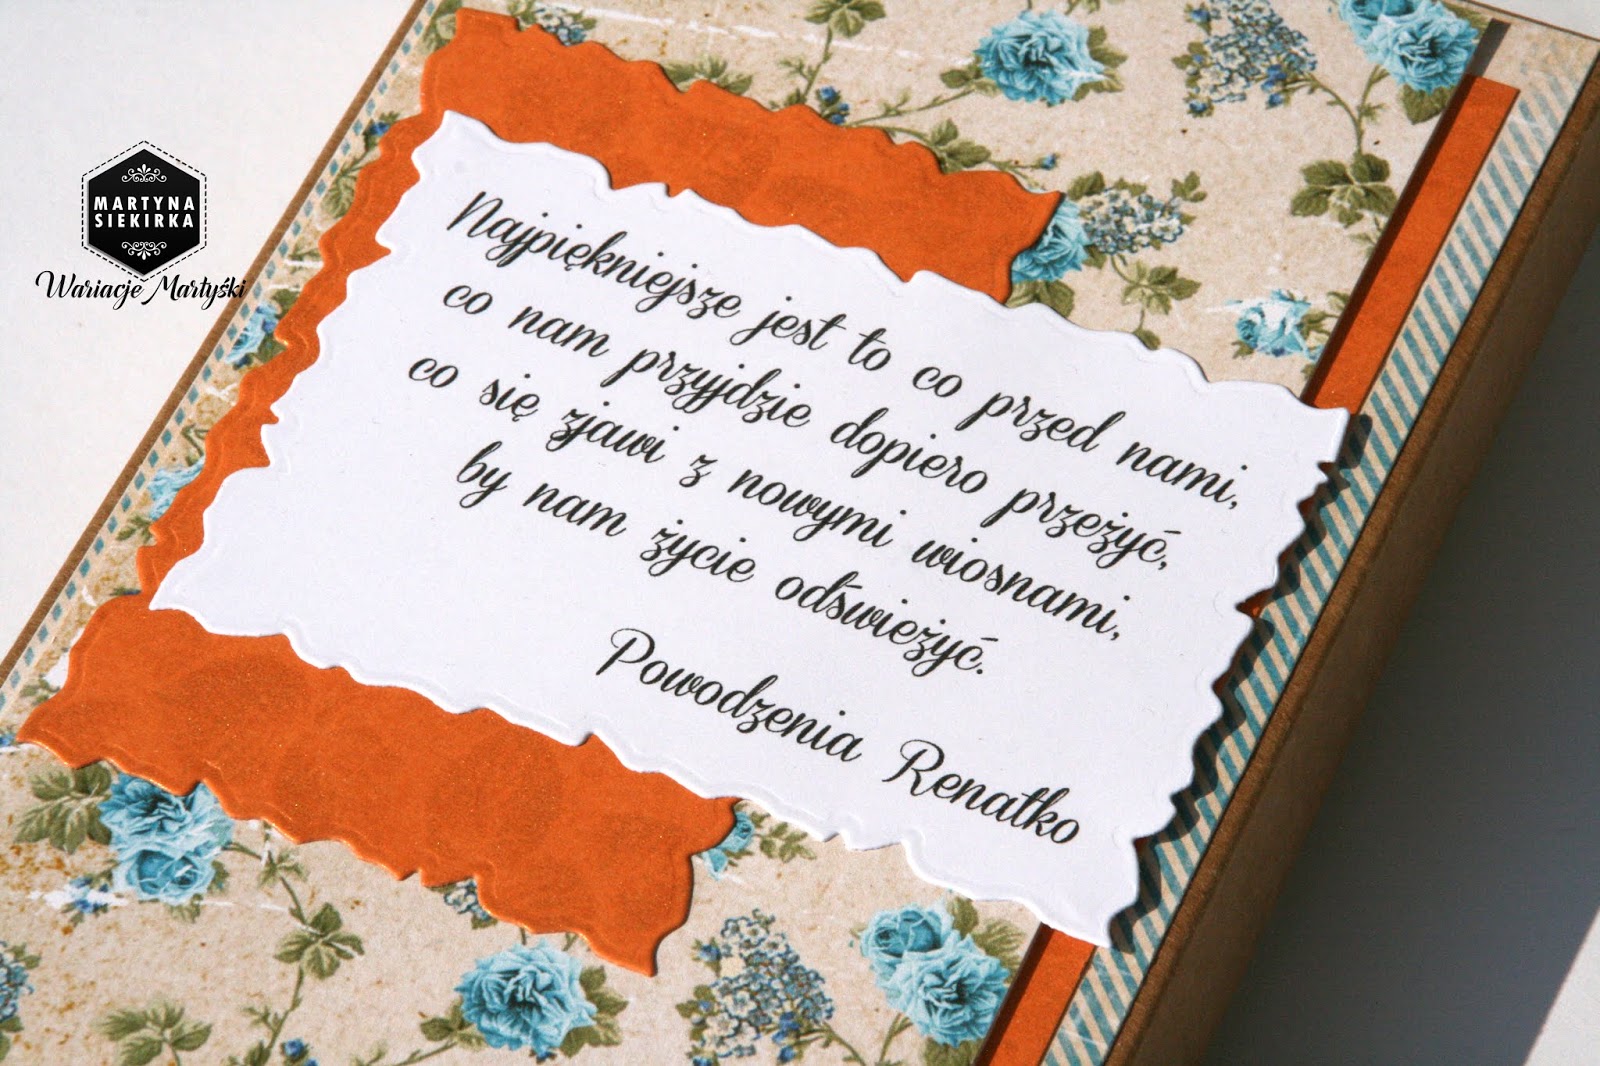 MARTYNA
SIEKIRKA
Wariacje Martyśki
Najpiękniejsze jest to co przed nami,
co nam przyjdzie dopiero przeżyć,
co się zjawi z nowymi wiosnami,
by nam życie odświeżyć.
Powodzenia Renatko